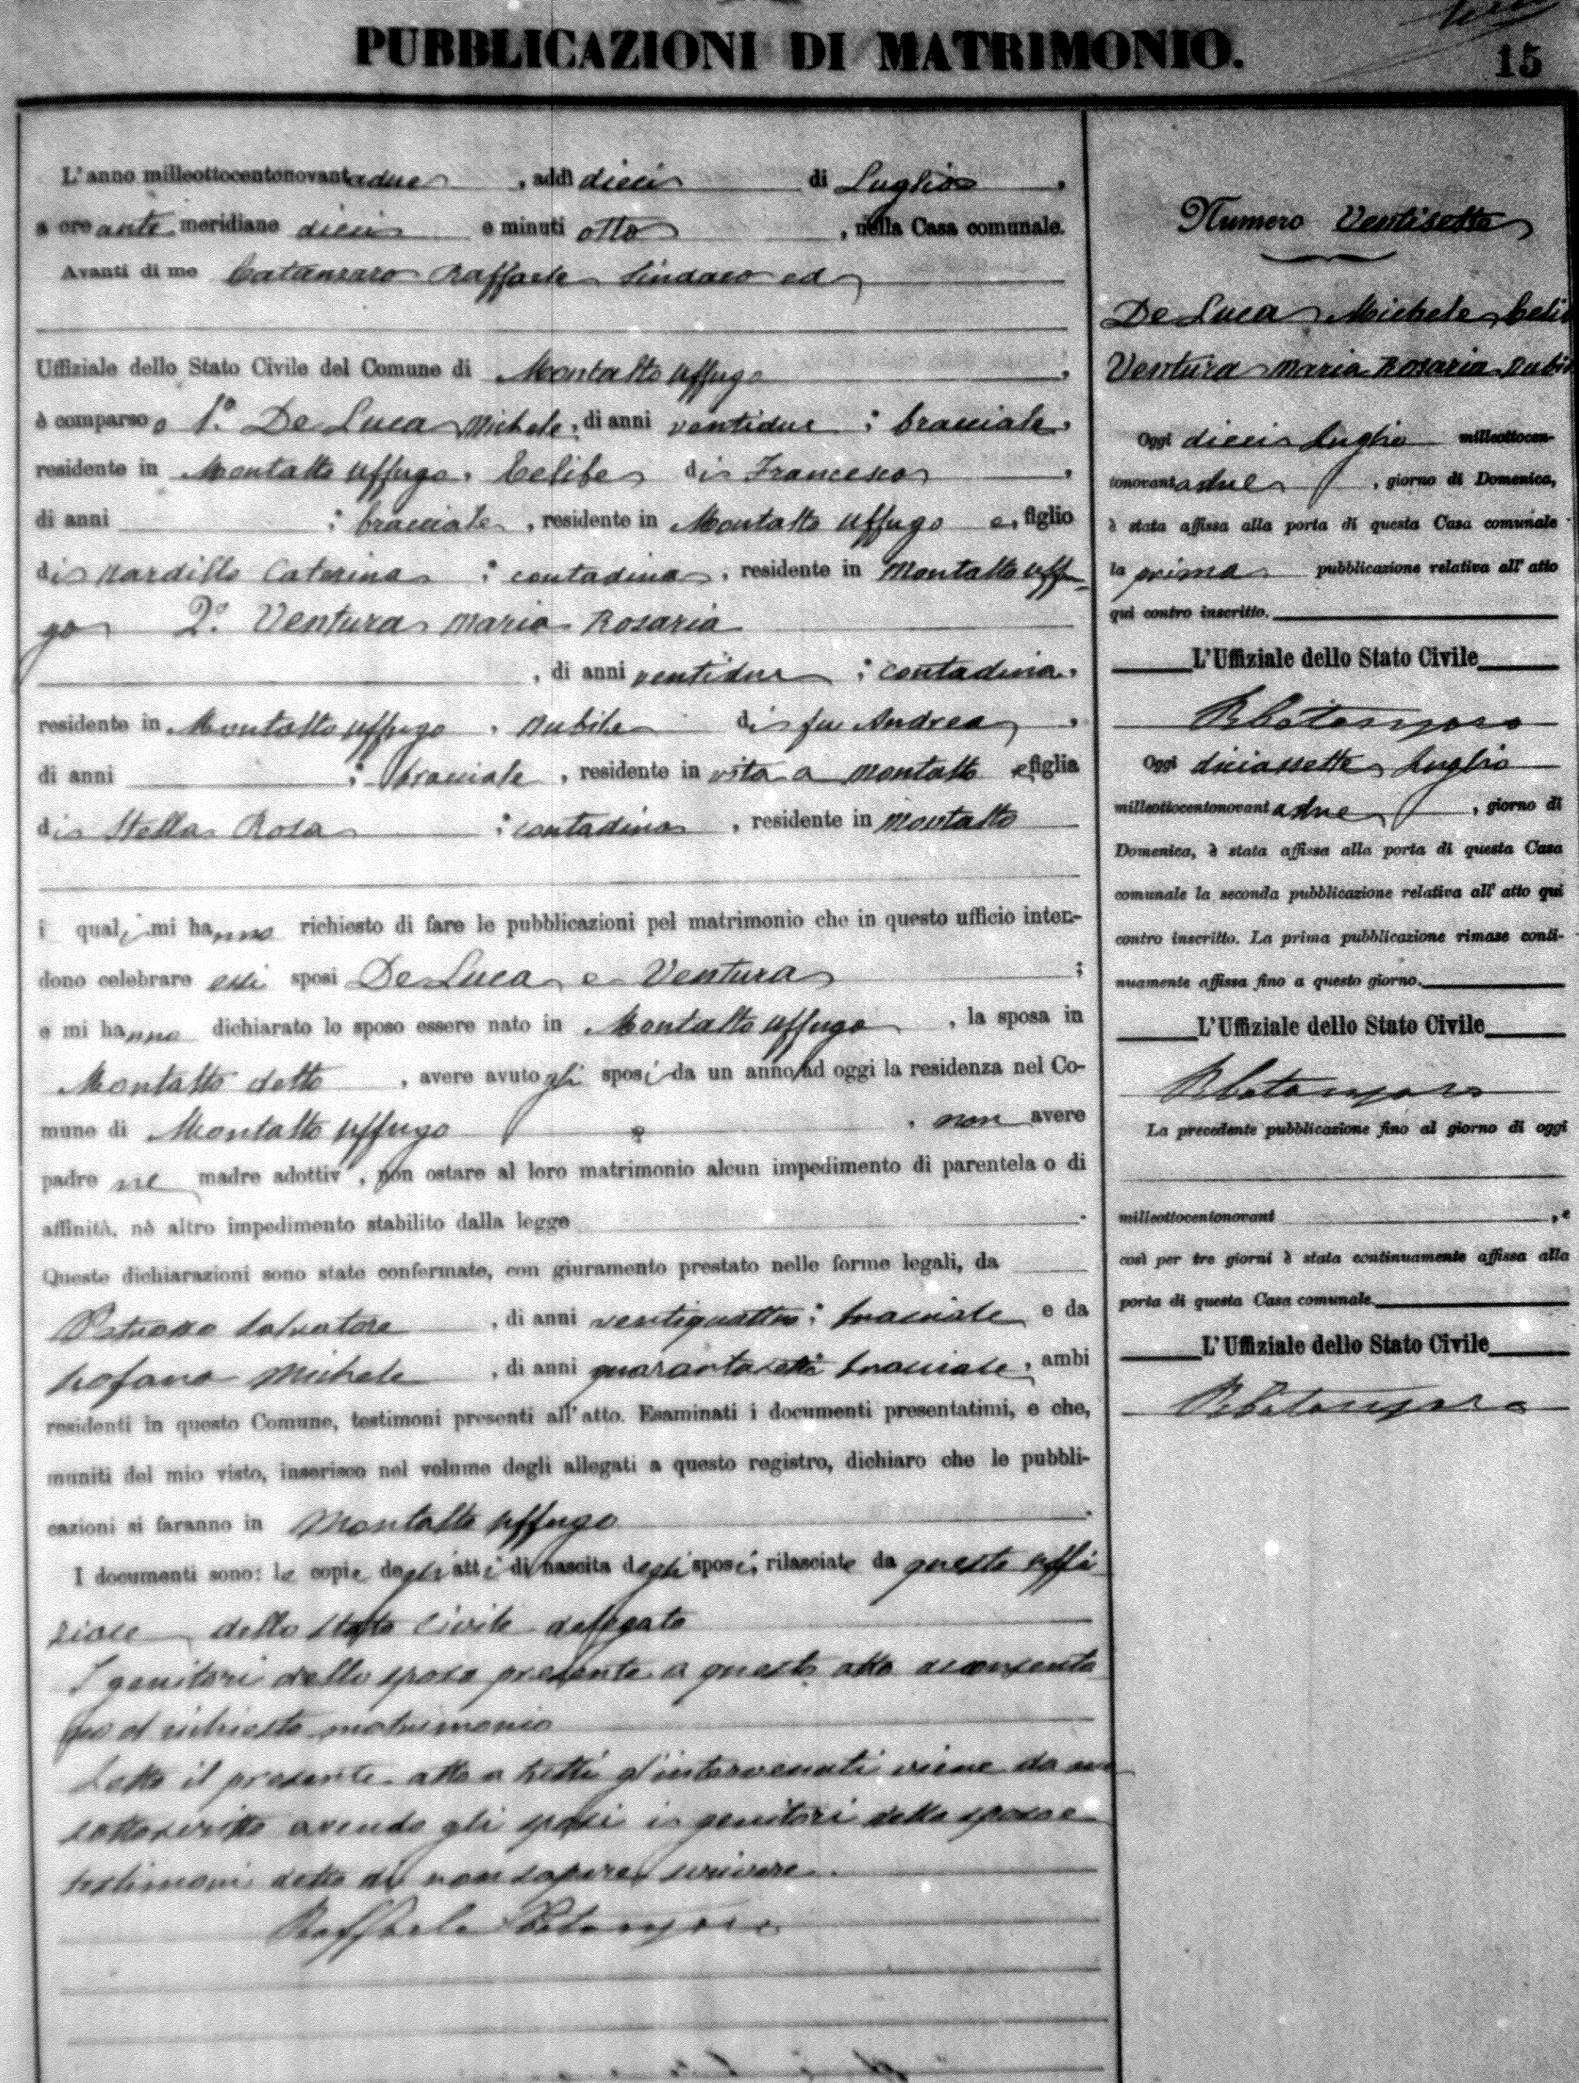 PUBBLICAZIONI DI MATRIMONIO.
15
L'anno milleottocentonovantadue, addì dieci di Luglio,
a ore anti meridiane dieci e minuti otto, nella Casa comunale.
Avanti di me Catanzaro Raffaele Sindaco ed
Uffiziale dello Stato Civile del Comune di Montalto Uffugo,
è comparso 1° De Luca Michele, di anni ventidue; bracciale,
residente in Montalto Uffugo, Celibe di Francesco,
di anni ; bracciale, residente in Montalto Uffugo e, figlio
di Nardillo Caterina; contadina, residente in Montalto Uffu-
go 2° Ventura Maria Rosaria
, di anni ventidue; contadina,
residente in Montalto Uffugo, nubile di fu Andrea,
di anni ; bracciale, residente in vita a Montalto e figlia
di Stella Rosa; contadina, residente in Montalto
i quali mi hanno richiesto di fare le pubblicazioni pel matrimonio che in questo ufficio inten-
dono celebrare essi sposi De Luca e Ventura;
e mi hanno dichiarato lo sposo essere nato in Montalto Uffugo, la sposa in
Montalto detto, avere avuto gli sposi da un anno ad oggi la residenza nel Co-
mune di Montalto Uffugo, non avere
padre ne madre adottiv, non ostare al loro matrimonio alcun impedimento di parentela o di
affinità, nè altro impedimento stabilito dalla legge.
Queste dichiarazioni sono state confermate, con giuramento prestato nelle forme legali, da
Salvatore, di anni ventiquattro; bracciale e da
Michele, di anni quarantasette bracciale, ambi
residenti in questo Comune, testimoni presenti all'atto. Esaminati i documenti presentatimi, e che,
muniti del mio visto, inserisco nel volume degli allegati a questo registro, dichiaro che le pubbli-
cazioni si faranno in Montalto Uffugo.
I documenti sono: le copie degli atti di nascita degli sposi, rilasciate da questo uffi
ziale dello Stato Civile delegato
I genitori dello sposo presente a questo atto acconsento
no al richiesto matrimonio
Letto il presente atto a tutti gl'intervenuti viene da me
sottoscritto avendo gli sposi i genitori dello sposo e
testimoni detto di non sapere scrivere.
Raffaele Catanzaro
Numero Ventisette
De Luca Michele Celi
Ventura Maria Rosaria Nubi
Oggi dieci Luglio milleottocen-
tonovantadue, giorno di Domenica,
è stata affissa alla porta di questa Casa comunale
la prima pubblicazione relativa all'atto
qui contro inscritto.
L'Uffiziale dello Stato Civile
R Catanzaro
Oggi diciassette Luglio
milleottocentonovantadue, giorno di
Domenica, è stata affissa alla porta di questa Casa
comunale la seconda pubblicazione relativa all'atto qui
contro inscritto. La prima pubblicazione rimase conti-
nuamente affissa fino a questo giorno.
L'Uffiziale dello Stato Civile
R Catanzaro
La precedente pubblicazione fino al giorno di oggi
milleottocentonovant , e
così per tre giorni è stata continuamente affissa alla
porta di questa Casa comunale.
L'Uffiziale dello Stato Civile
R Catanzaro